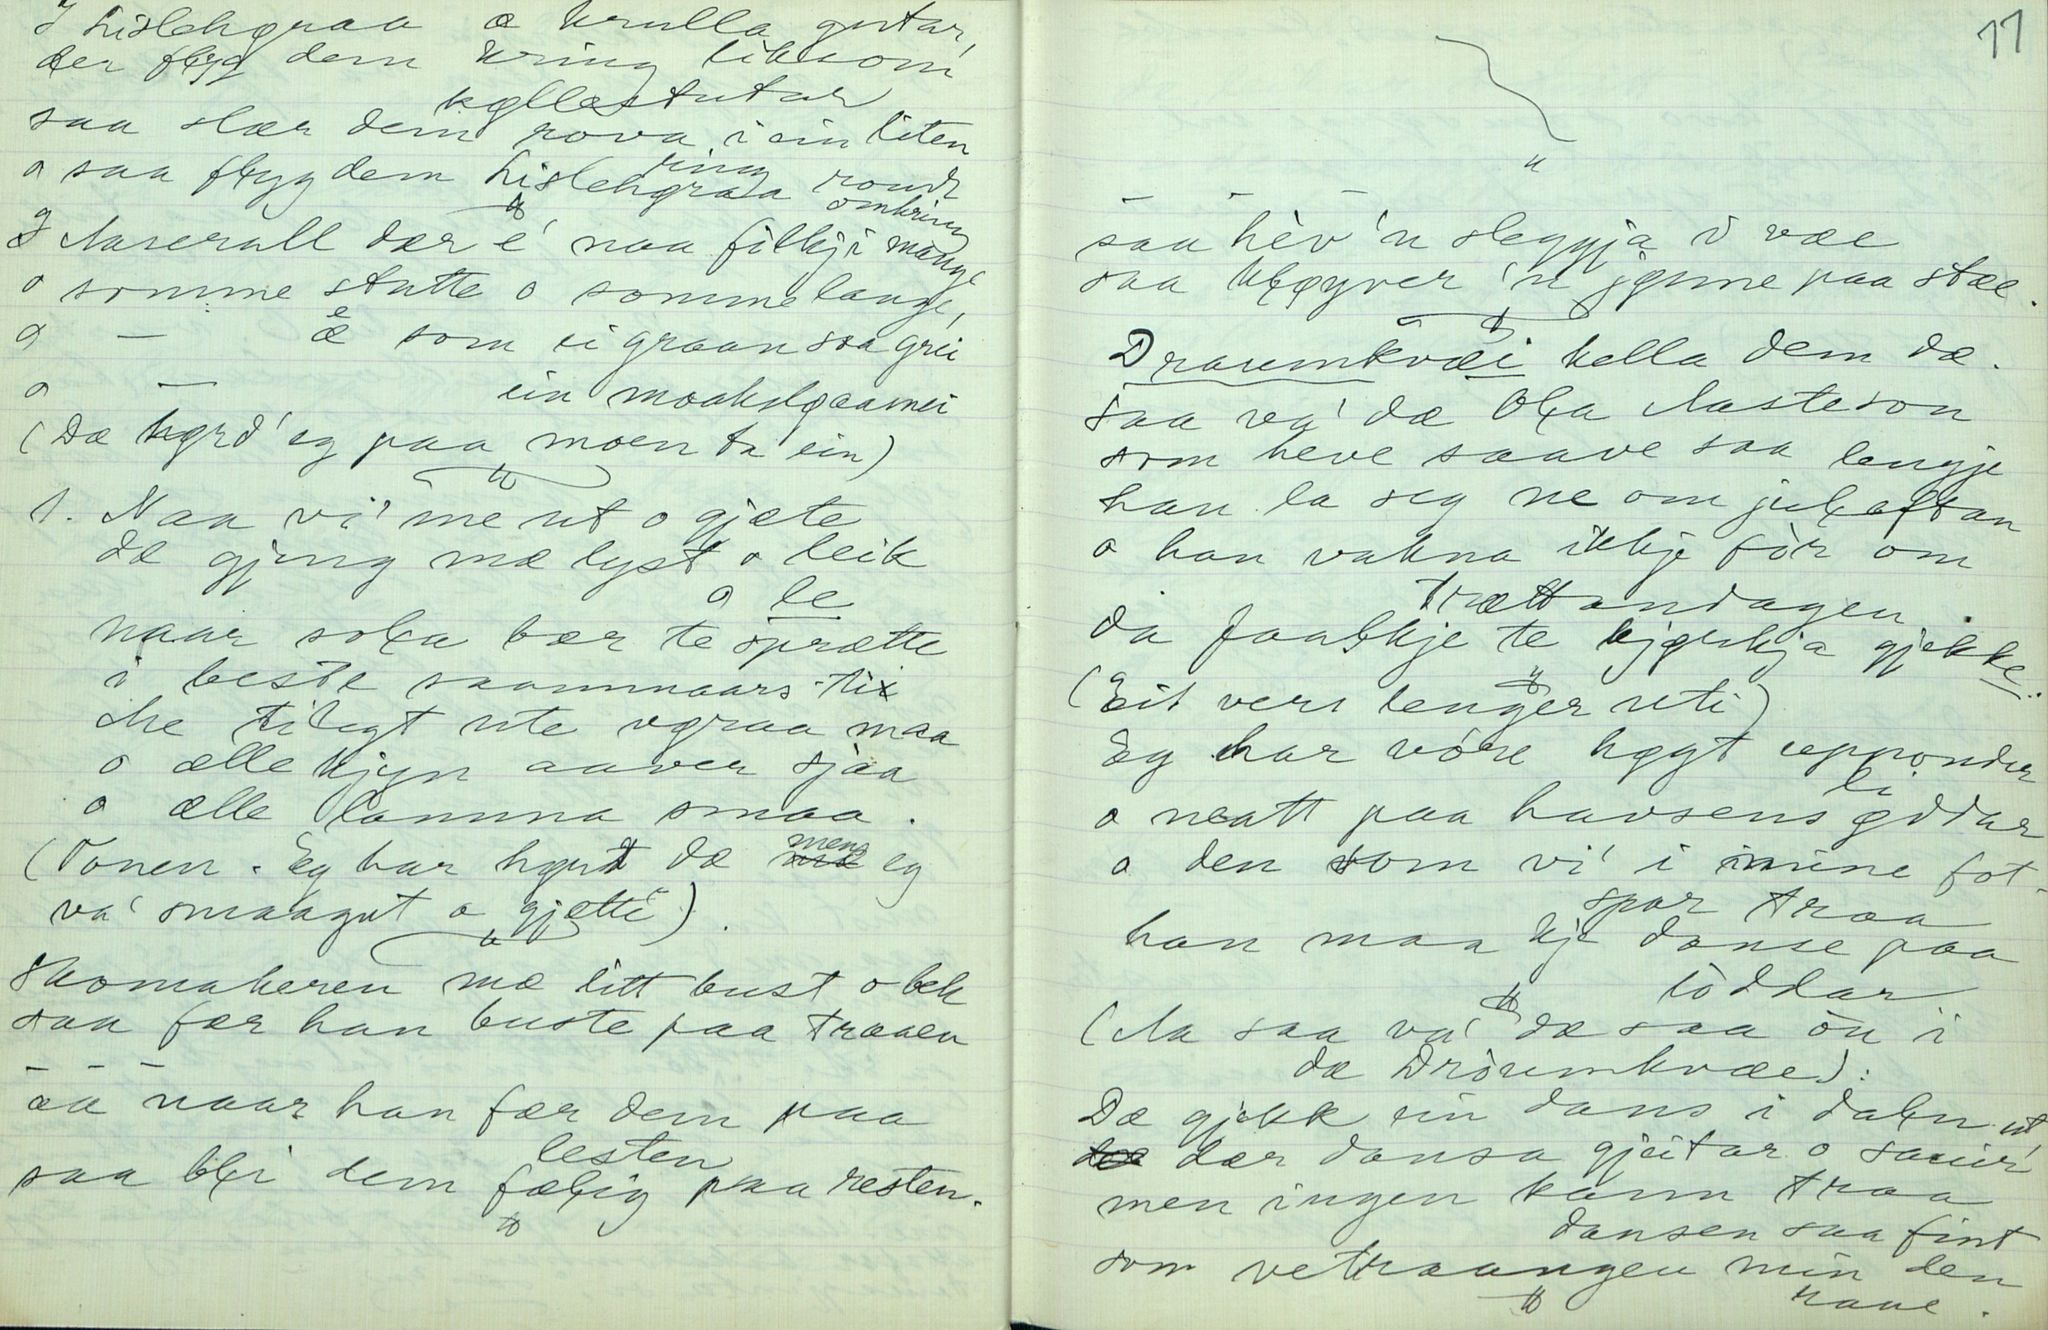 I Lislehgraa æ krulla gutar,
der flyg dem kring liksom
køllestutar
saa slær dem rova i ein liten
ring
o saa flyg dem Lislehgraa rondt
omkring
I Aaserall dær e' naa filkji mange
o somme stutte o somme lange,
o — e som ei graan saa grei
o — ein
(Dæ hørd' eg paa moen ta ein)
1. Naa vi' me ut o gjæte
dæ gjeng mæ lyst o leik
o le
naar sola bær te sprætte
i beste saammaars-ti
Me tilegt ute vøraa maa
o ælle kjyn aaver sjaa
o ælle lamma smaa.
(Tonen. Eg har høurt dæ mens eg
va' smaagut o gjetti).
Skomakeren mæ litt bust o bek
saa fær han buste paa traaen
— — —
aa naar han fær dem paa
lesten
saa bli dem fælig paa resten.
11
— — —
saa hèv'n sleggja i væe
saa kløyver 'n jønne paa stæe.
Draumkvæi kalla dem dæ.
Saa va' dæ Ola Aasteson
som heve saave saa lengje
han la seg ne om julaftan
o han vakna ikkje fòr om
Trættandagen.
da faalkje te kjørkja gjekke.
(Eit vers lenger uti)
Eg har vóre høgt uppонder
li
o neatt paa havsens øddar
o den som vi' i mine fot-
spor traa
han maa kje danse paa
löddar
(Aa saa va' dæ saa òn i
dæ Dròumkvæe).
Dæ gjekk ein dans i dalen ut
dær dansa gjeitar o sauir
men ingen kann traa
dansen saa fint
som vetraangen min den